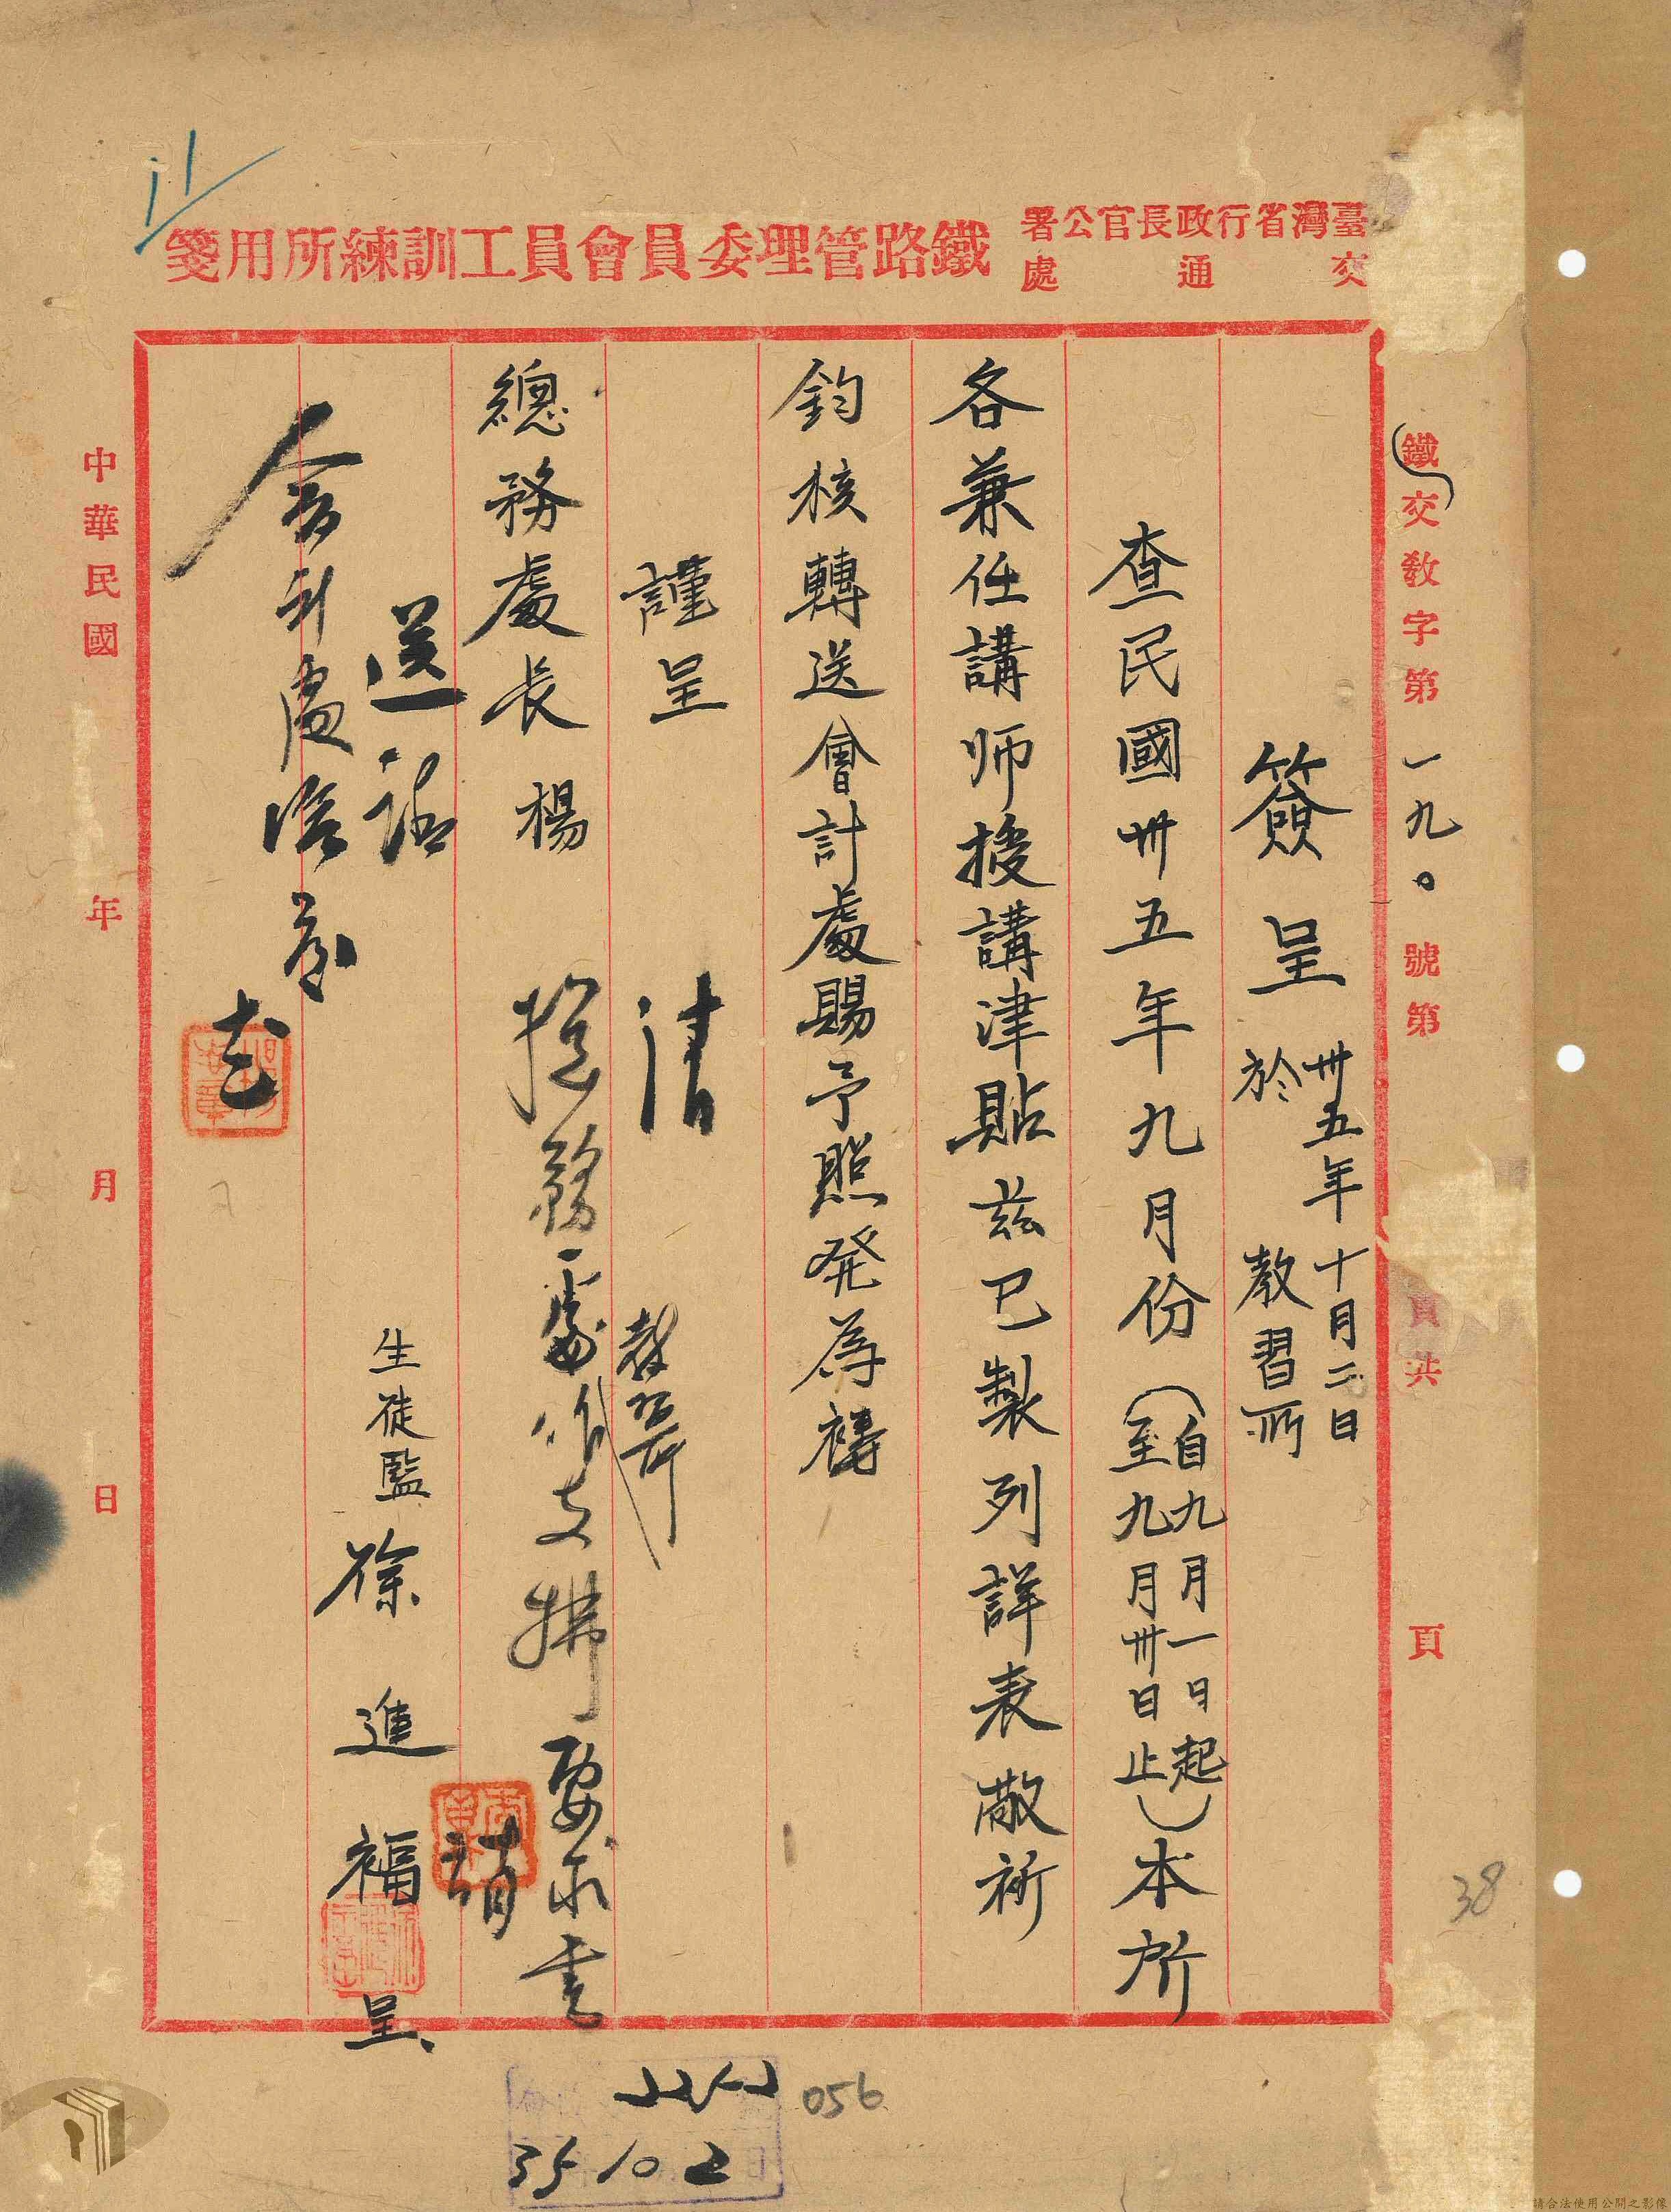 臺灣省行政長官公署
交通處
鐵路管理委員會員工訓練所用箋
鐵交教字第一九〇號第頁共頁
簽呈
卅五年十月二日
於教習所
查民國卅五年九月份(自九月一日起至九月卅日止)本所
各兼任講师授講津貼茲已製列詳表敬祈
鈞核轉送會計處賜予照発為禱
謹呈
總務處長楊
生徒監徐進福呈
請
總務處
送請
會計處
中華民國年月日
35 10 2
056
38
請合法使用公開之影像